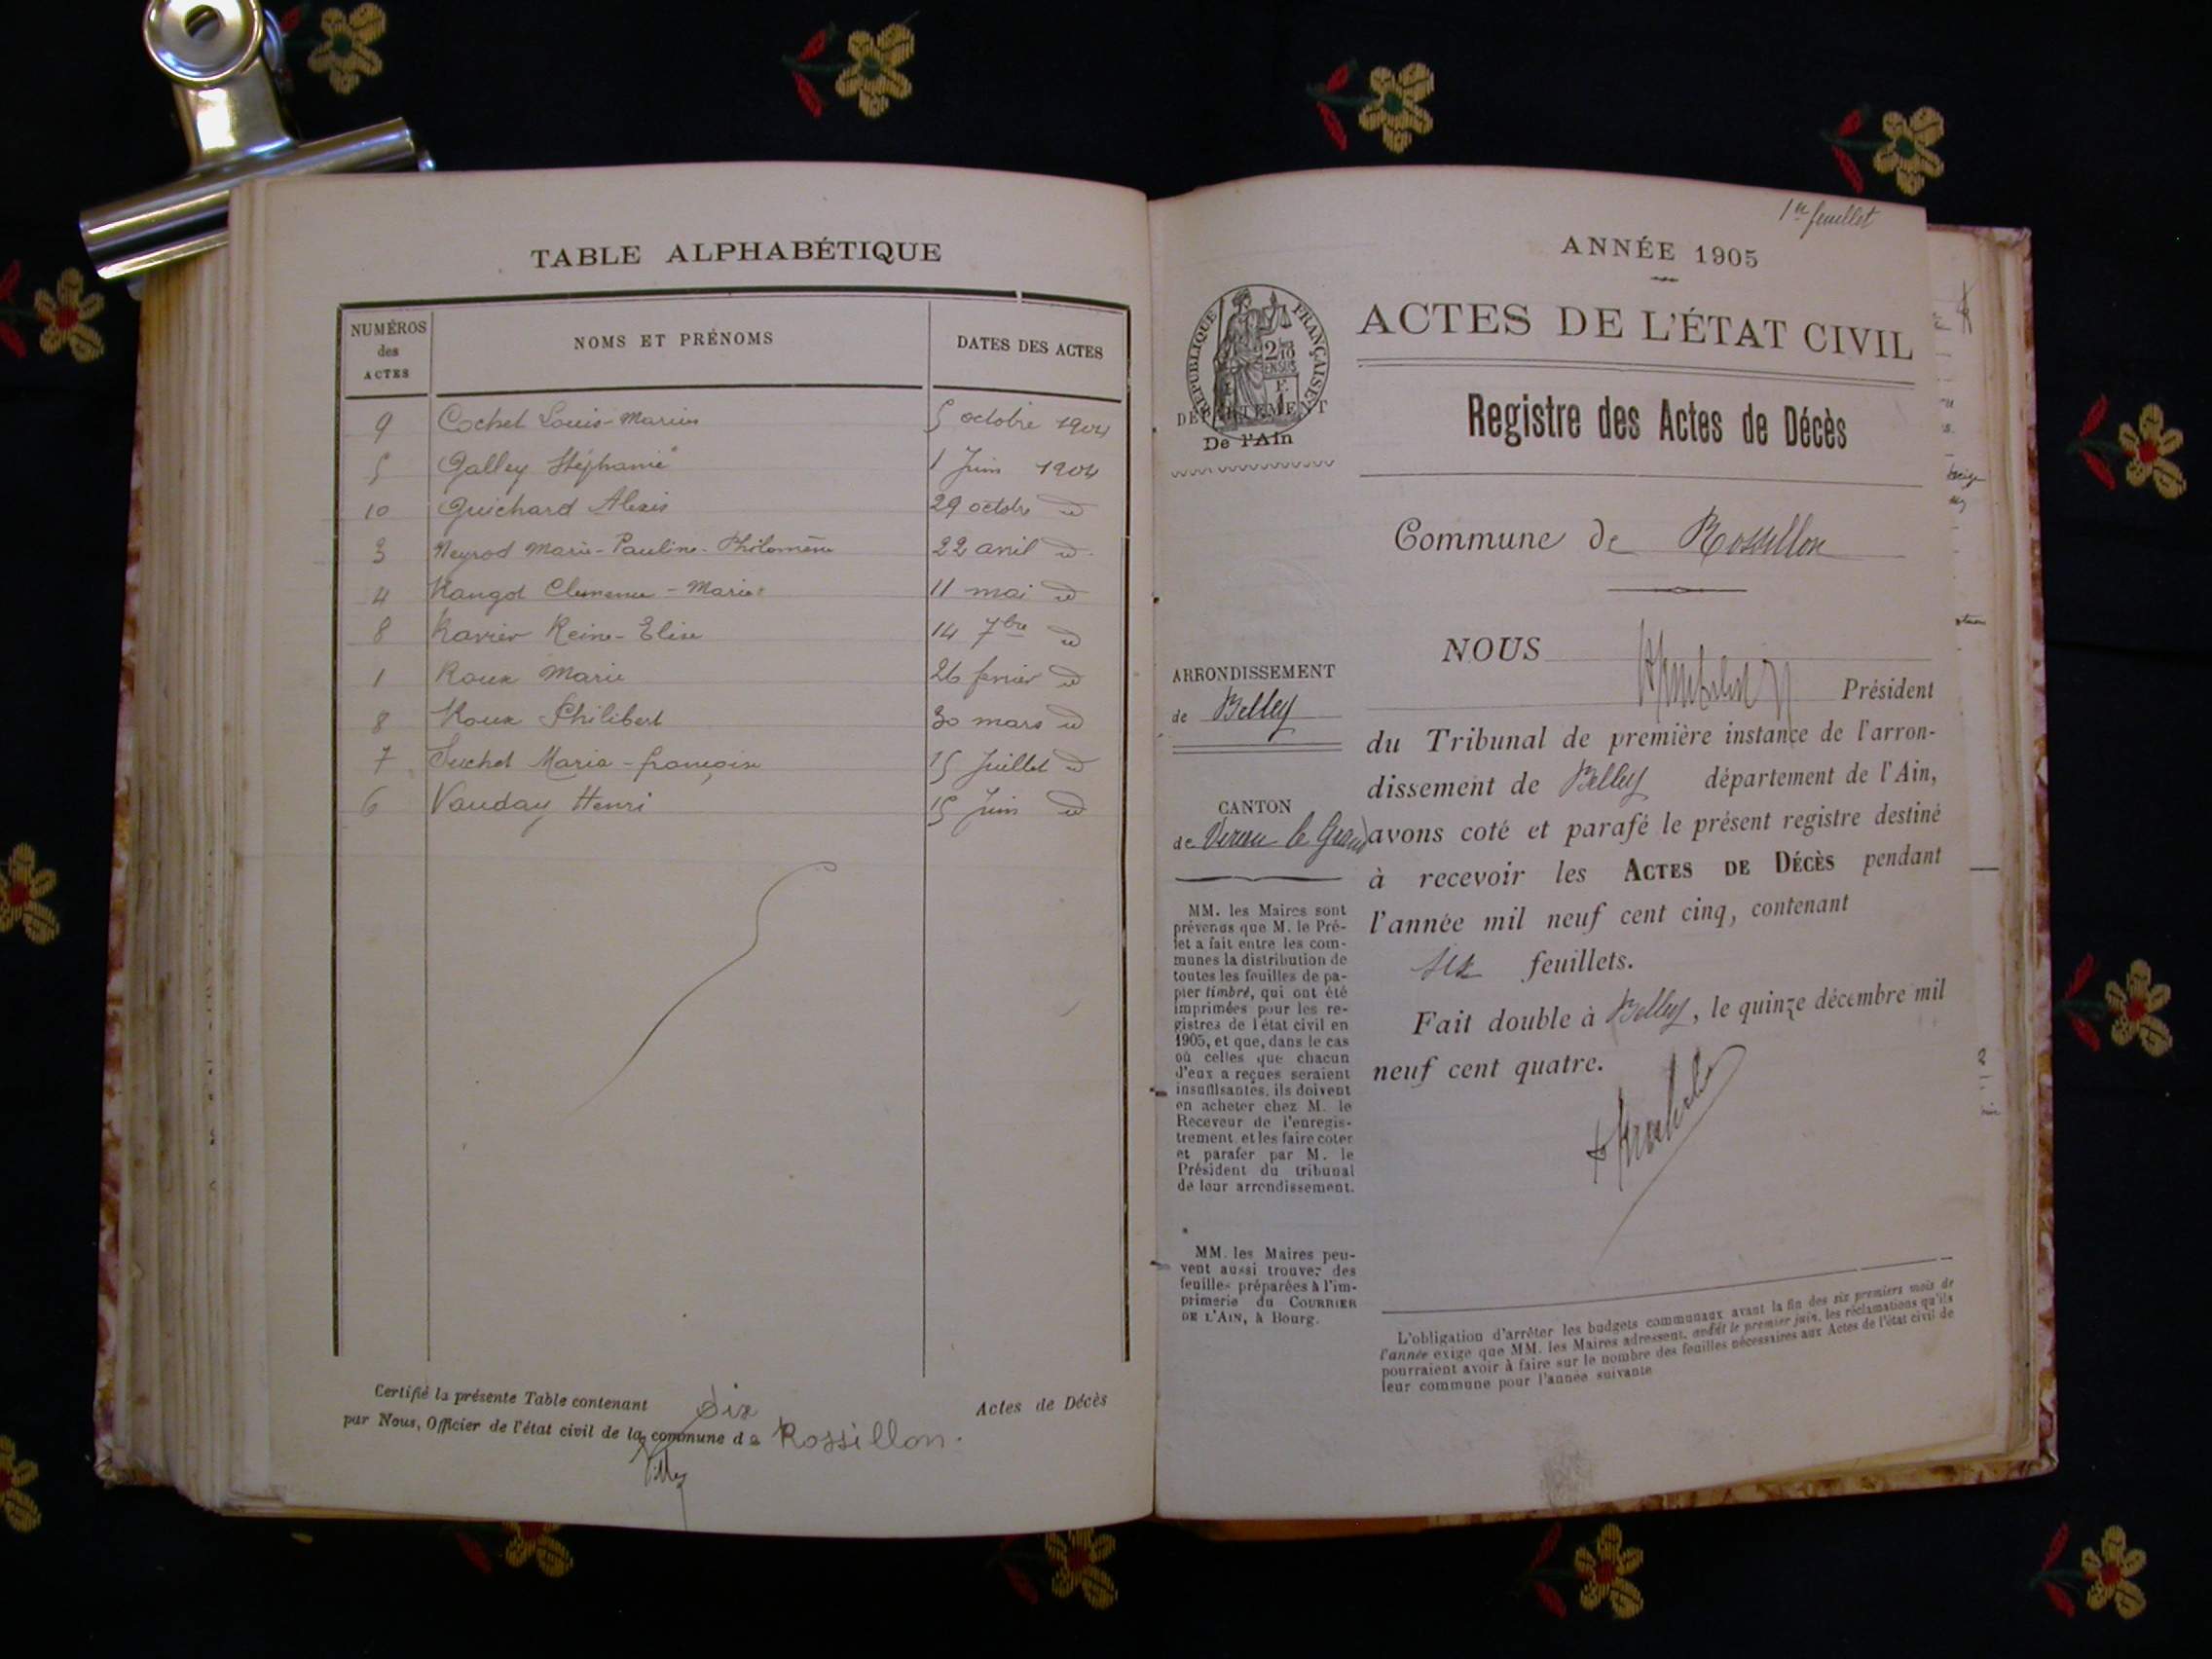 TABLE ALPHABÉTIQUE
NUMÉROS des ACTES NOMS ET PRÉNOMS DATES DES ACTES
9 Cochet Louis-Marius 5 octobre 1904
5 Galley Stéphanie 1 Juin 1904
10 Guichard Alexis 29 octobre d
3 Neyrod Marie-Pauline-Philomène 22 avril d
4 Rangod Clemence-Marie 11 mai d
8 Ravier Reine-Elise 14 7bre d
1 Roux Marie 26 fevrier d
8 Roux Philibert 30 mars d
7 Suchet Maria-françoise 15 Juillet d
6 Vauday Henri 15 Juin d
Certifié la présente Table contenant dix Actes de Décès
par Nous, Officier de l'état civil de la commune de Rossillon.
1er feuillet
ANNÉE 1905
ACTES DE L'ÉTAT CIVIL
RÉPUBLIQUE FRANÇAISE
DÉPARTEMENT
De l'Ain
Registre des Actes de Décès
Commune de Rossillon
ARRONDISSEMENT
de Belley
CANTON
de Virieu le Grand
MM. les Maires sont
prévenus que M. le Pré-
fet a fait entre les com-
munes la distribution de
toutes les feuilles de pa-
pier timbré, qui ont été
imprimées pour les re-
gistres de l'état civil en
1905, et que, dans le cas
où celles que chacun
d'eux a reçues seraient
insuffisantes, ils doivent
en acheter chez M. le
Receveur de l'enregis-
trement et les faire coter
et parafer par M. le
Président du tribunal
de leur arrondissement.
MM. les Maires peu-
vent aussi trouver des
feuilles préparées à l'im-
primerie du COURRIER
DE L'AIN, à Bourg.
NOUS
Président
du Tribunal de première instance de l'arron-
dissement de Belley département de l'Ain,
avons coté et parafé le présent registre destiné
à recevoir les ACTES DE DÉCÈS pendant
l'année mil neuf cent cinq, contenant
six feuillets.
Fait double à Belley, le quinze décembre mil
neuf cent quatre.
L'obligation d'arrêter les budgets communaux avant la fin des six premiers mois de
l'année exige que MM. les Maires adressent, avant le premier juin, les réclamations qu'ils
pourraient avoir à faire sur le nombre des feuilles nécessaires aux Actes de l'état civil de
leur commune pour l'année suivante